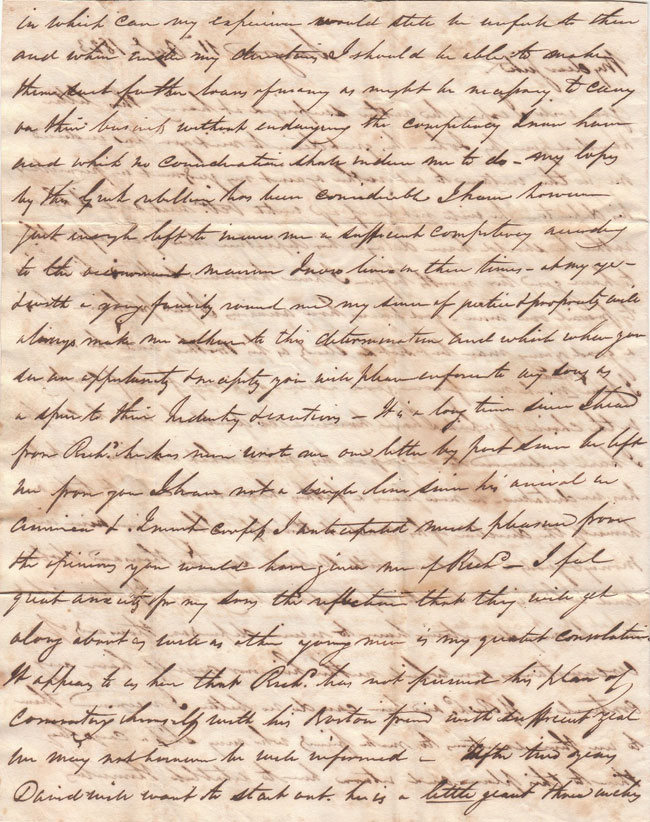 in which case my experience would still be useful to them
and when under my direction I should be able to make
them such further loans of money as might be necessary to carry
on their business without endangering the competency I now have
and which no consideration shall induce me to do – my losses
by this Greek rebellion has been considerable I have however
just enough left to insure me a sufficient competency according
to the economical manner I now live in these times – at my age –
& with a young family round me my sense of justice & propriety will
always make me adhere to this determination and which when you
see an opportunity & necessity you will please enforce to my sons as
a spur to their Industry & exertions – It is a long time since I heard
from Richd. he has never wrote me one letter by post since he left
me from you I have not a single line since his arrival in
America & I must confess I anticipated much pleasure from
the opinions you would have given me of Richd. – I feel
great anxiety for my sons the reflection that they will get
along about as well as other young men is my greatest consolation
It appears to us here that Richd. has not pursued his plan of
connecting himself with his Boston friend with sufficient zeal
we may not however be well informed – After two years
David will want to start out. he is a little giant three inches